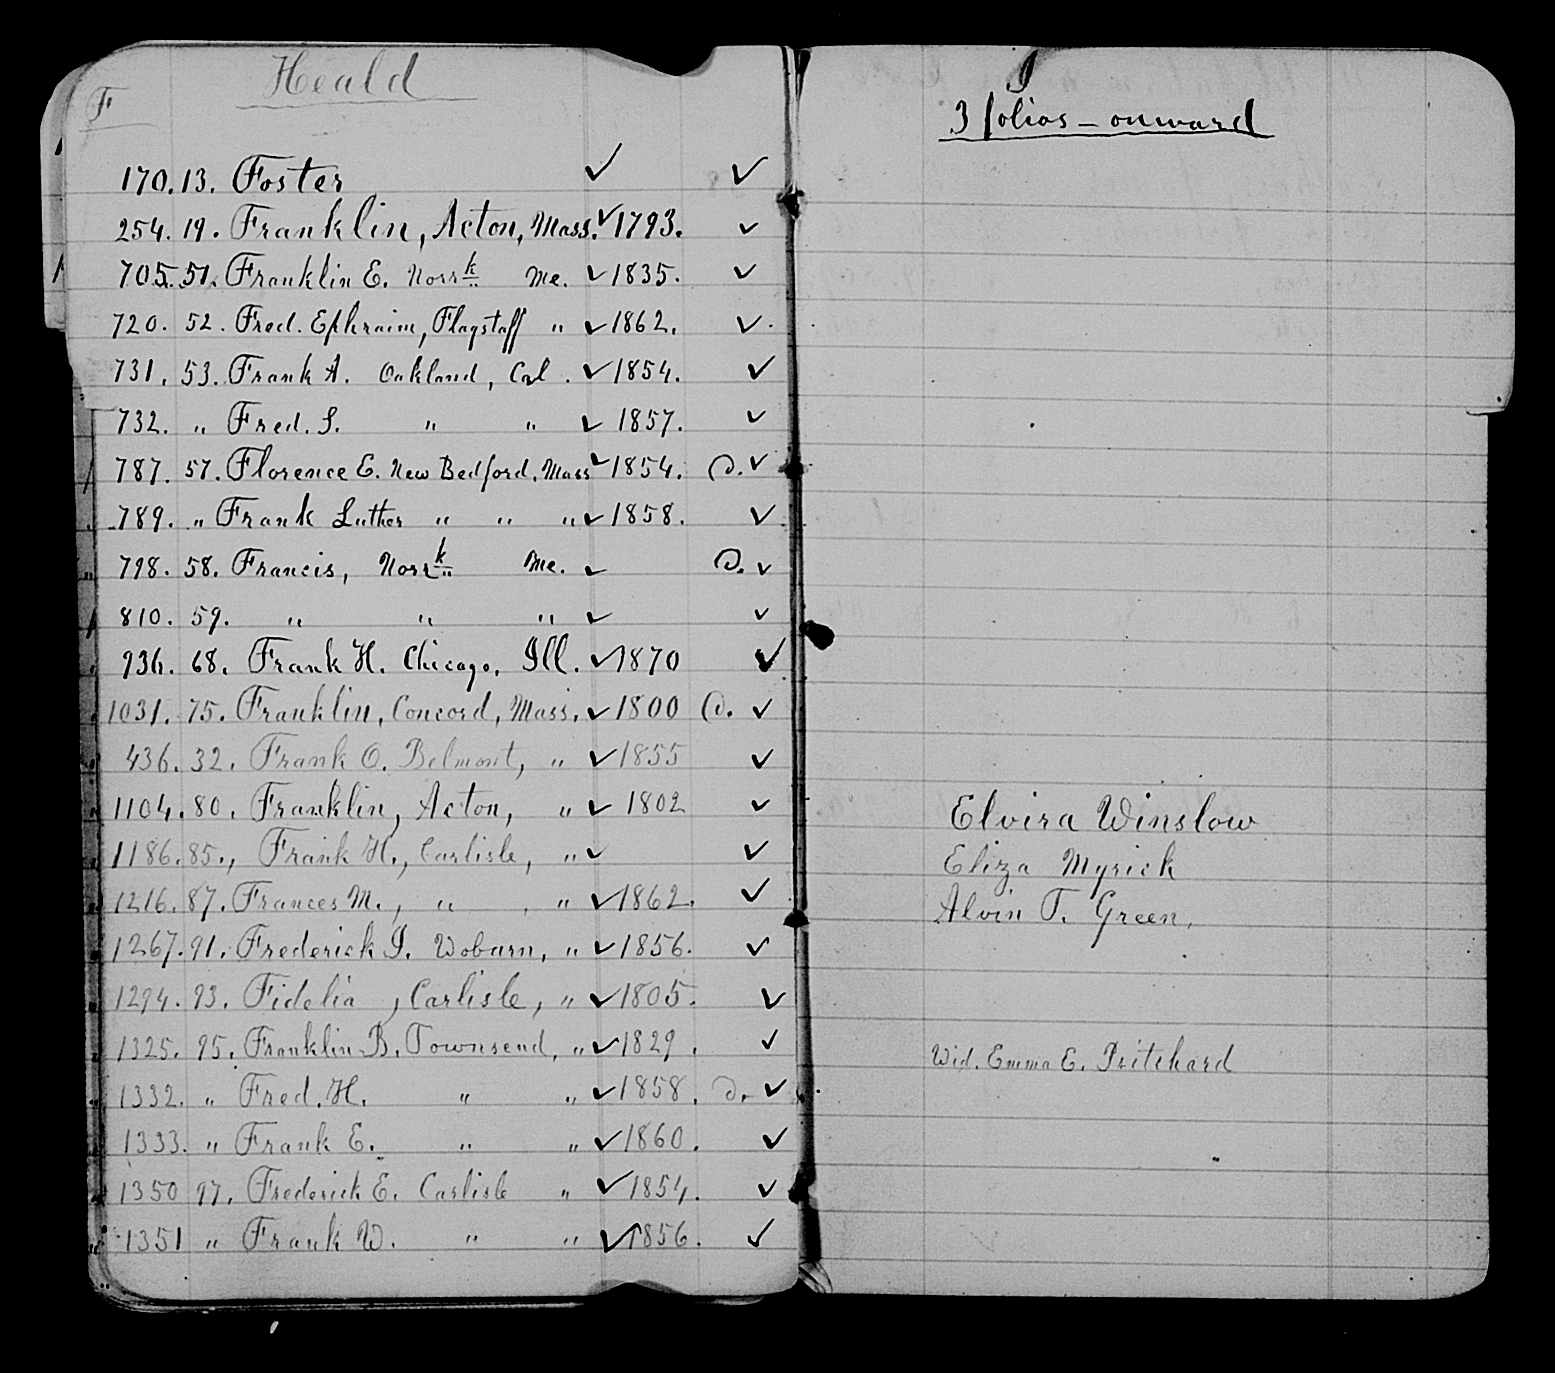 Heald
F
170. 13. Foster ✓ ✓
254. 19. Franklin, Acton, Mass. ✓ 1793. ✓
705. 51. Franklin E. Norrk Me. ✓ 1835. ✓
720. 52. Fred. Ephraim, Flagstaff " ✓ 1862. ✓
731. 53. Frank A. Oakland, Cal. ✓ 1854. ✓
732. " Fred. S. " " ✓ 1857. ✓
787. 57. Florence E. New Bedford, Mass ✓ 1854. D. ✓
789. " Frank Luther " " " ✓ 1858. ✓
798. 58. Francis, Norrk Me. ✓ D. ✓
810. 59. " " " ✓ ✓
936. 68. Frank H. Chicago, Ill. ✓ 1870 ✓
1031. 75. Franklin, Concord, Mass. ✓ 1800 D. ✓
436. 32. Frank O. Belmont, " ✓ 1855 ✓
1104. 80. Franklin, Acton, " ✓ 1802 ✓
1186. 85., Frank H., Carlisle, " ✓ ✓
1216. 87. Frances M., " , " ✓ 1862. ✓
1267. 91. Frederick I. Woburn, " ✓ 1856. ✓
1294. 93. Fidelia , Carlisle, " ✓ 1805. ✓
1325. 95. Franklin B. Townsend, " ✓ 1829. ✓
1332. " Fred. H. " " ✓ 1858. D. ✓
1333. " Frank E. " " ✓ 1860. ✓
1350 97. Frederick E. Carlisle " ✓ 1854. ✓
1351 " Frank W. " " ✓ 1856. ✓
3 folios - onward
Elvira Winslow
Eliza Myrick
Alvin T. Green,
Wid. Emma E. Pritchard